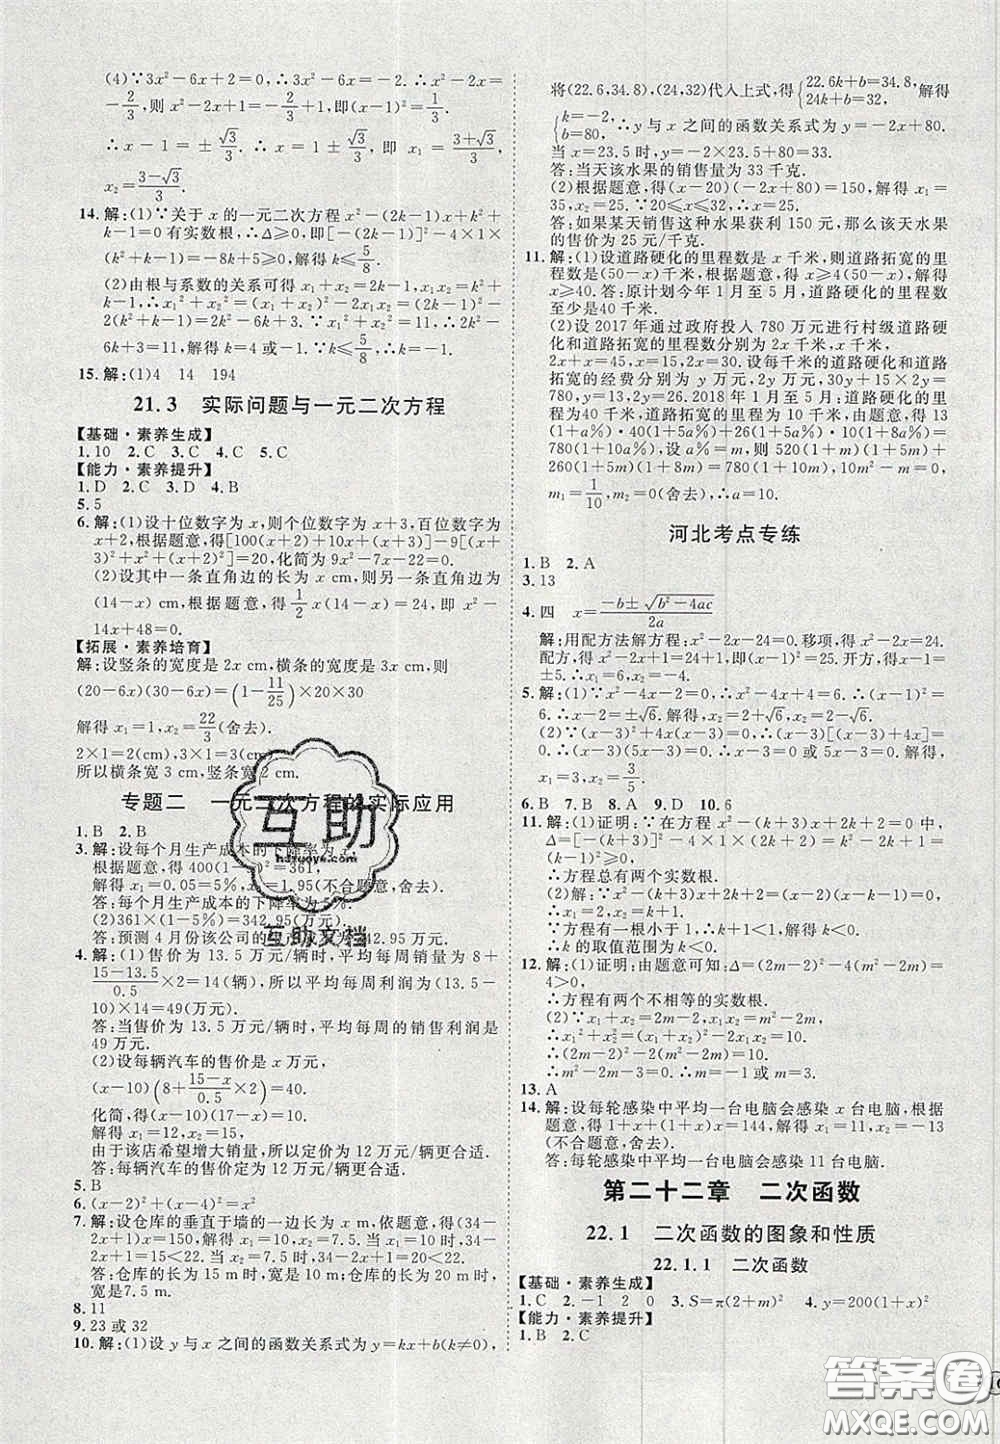 (4)∵3x²-6x+2=0,∴3x²-6x=-2.∴x²-2x=
-2/3,则 x²-2x+1=-2/3+1,即(x-1)²=1/3.
∴x-1=±√3/3.∴x=1±√3/3,即 x₁=(3+√3)/3,
x₂=(3-√3)/3.
14.解:(1)∵关于 x 的一元二次方程 x²-(2k-1)x+k²
+k-1=0 有实数根,∴Δ≥0,即[-(2k-1)]²-4×1×
(k²+k-1)=-8k+5≥0,解得 k≤5/8.
(2)由根与系数的关系可得 x₁+x₂=2k-1,x₁x₂=k²
+k-1,∴x₁²+x₂²=(x₁+x₂)²-2x₁x₂=(2k-1)²-
2(k²+k-1)=2k²-6k+3.∵x₁²+x₂²=11,∴2k²-
6k+3=11,解得 k=4 或-1.∵k≤5/8,∴k=-1.
15.解:(1)4 14 194
21.3 实际问题与一元二次方程
【基础·素养生成】
1.10 2.C 3.C 4.C 5.C
【能力·素养提升】
1.D 2.C 3.D 4.B
5.5
6.解:(1)设十位数字为 x,则个位数字为 x+3,百位数字为
x+2,根据题意,得[100(x+2)+10x+(x+3)]-9[(x+
2)²+x²+(x+3)²]=20,化简为 9x²-7x-22=0.
(2)设其中一条直角边的长为 x cm,则另一条直角边长为
(14-x) cm,根据题意,得 1/2 x(14-x)=24,整理,得 x²-
14x+48=0.
【拓展·素养培育】
解:设竖条的宽度是 2x cm,横条的宽度是 3x cm,则
(20-6x)(30-4x)=(1-11/25)×20×30
解得 x₁=1,x₂=22/3(舍去).
2×1=2(cm),3×1=3(cm).
所以横条宽 3 cm,竖条宽 2 cm.
专题二 一元二次方程的实际应用
1.B 2.B
3.解:设每个月生产成本的下降率为 x,
根据题意,得 400(1-x)²=361,
解得 x₁=0.05=5%,x₂=1.95(不合题意,舍去).
答:每个月生产成本的下降率为 5%.
(2)361×(1-5%)=342.95(万元).
答:预测 4 月份该公司的生产成本为 342.95 万元.
4.解:(1)当售价为 13.5 万元/辆时,平均每周的销量为 8+
(15-13.5)/0.5×2=14(辆),所以平均每周利润为(13.5-
10)×14=49(万元).
答:当售价为 13.5 万元/辆时,平均每周的销售利润是
49 万元.
(2)设每辆汽车的售价是 x 万元,
(x-10)(8+(15-x)/0.5×2)=40.
化简,得(x-12)(x-17)=0.
解得 x₁=12,x₂=17.
由于该店希望增大销量,所以定价为 12 万元/辆更合适.
答:每辆汽车的售价定为 12 万元/辆更合适.
5.B
6.(x-2)²+(x-4)²=x²
7.解:设仓库的垂直于墙的一边长为 x m,依题意,得(34-
2x)x=140.解得 x₁=10,x₂=7.当 x₁=10 时,34-2x=
34-20=14<18;当 x₂=7 时,34-2x=20>18(舍去).
答:仓库的长是 14 m,宽是 10 m.
8.11
9.23 或 32
10.解:(1)设 y 与 x 之间的函数关系式为 y=kx+b(k≠0),
将(22.6,34.8),(24,32)代入上式,得{22.6k+b=34.8, 24k+b=32, 解得
{k=-2, b=80. ∴y 与 x 之间的函数关系式为 y=-2x+80.
当 x=23.5 时,y=-2x+80=33.
答:当天该水果的销售量为 33 千克.
(2)根据题意,得(x-20)(-2x+80)=150,解得 x₁=
35,x₂=25.∵20≤x≤32,∴x=25.
答:如果某天销售这种水果获利 150 元,那么该天水果
的售价为 25 元/千克.
11.解:(1)设道路硬化的里程数是 x 千米,则道路拓宽的里程
数是(50-x)千米,根据题意,得 x≥4(50-x),解得
x≥40.答:原计划今年 1 月至 5 月,道路硬化的里程数
至少是40 千米.
(2)设 2017 年通过政府投入 780 万元进行村级道路硬
化和道路拓宽的里程数分别为 2x 千米、x 千米,
2x+x=45,x=15,2x=30.设每千米的道路硬化和道路
拓宽的经费分别为 y 万元、2y 万元,30y+15×2y=
780,y=13,2y=26.2018 年 1 月至 5 月,政府道路硬化
的里程数为 40 千米,道路拓宽为 10 千米,由题意,得 13
(1+a%)·40(1+5a%)+26(1+5a%)·10(1+
8a%)=780(1+10a%),设 a%=m,则 520(1+m)(1+5m)
+260(1+5m)(1+8m)=780(1+10m),10m²-m=0,
m₁=1/10,m₂=0(舍去),∴a=10.
河北考点专练
1.B 2.A
3.13
4.四 x=(-b±√(b²-4ac))/2a
解:用配方法解方程:x²-2x-24=0.移项,得 x²-2x=24.
配方,得 x²-2x+1=24+1,即(x-1)²=25.开方,得 x-1=
±5.∴x₁=6,x₂=-4.
5.解:(1)∵x²-4x-2=0,∴x²-4x+4=2+4.∴(x-2)²=
6.∴x-2=±√6.∴x₁=2+√6,x₂=2-√6.
(2)∵(x-3)²+4x(x-3)=0,∴(x-3)(x-3+4x)=0.
∴(x-3)(5x-3)=0.∴x-3=0 或 5x-3=0.解得,
x₁=3,x₂=3/5.
6.B 7.B 8.A 9.D 10.6
11.解:(1)证明:∵在方程 x²-(k+3)x+2k+2=0 中,
Δ=[-(k+3)]²-4×1×(2k+2)=k²-2k+1=(k-1)²≥0,
∴方程总有两个实数根.
(2)解:∵x²-(k+3)x+2k+2=(x-2)(x-k-1)=0,
∴x₁=2,x₂=k+1.
∵方程有一根小于 1,∴k+1<1,解得 k<0,
∴k 的取值范围为 k<0.
12.解:(1)证明:由题意可知:Δ=(2m-2)²-4(m²-2m)=
4>0,
∴方程有两个不相等的实数根.
(2)∵x₁+x₂=2m-2,x₁x₂=m²-2m,
∴x₁²+x₂²=(x₁+x₂)²-2x₁x₂=10,
∴(2m-2)²-2(m²-2m)=10,∴m²-2m-3=0,
∴m=-1 或 m=3.
13.A
14.解:设每轮感染中平均一台电脑会感染 x 台电脑,根据
题意,得 1+x+x(1+x)=144,解得 x₁=11,x₂=-13
(不合题意,舍去).
答:每轮感染中平均一台电脑会感染 11 台电脑.
第二十二章 二次函数
22.1 二次函数的图象和性质
22.1.1 二次函数
【基础·素养生成】
1.C 2.-1 2 0 3.S=π(2+m)² 4.y=200(1+x)²
【能力·素养提升】
1.B 2.C
互助
hdzuoye.com
互助文档
答案圈
MXQE.COM